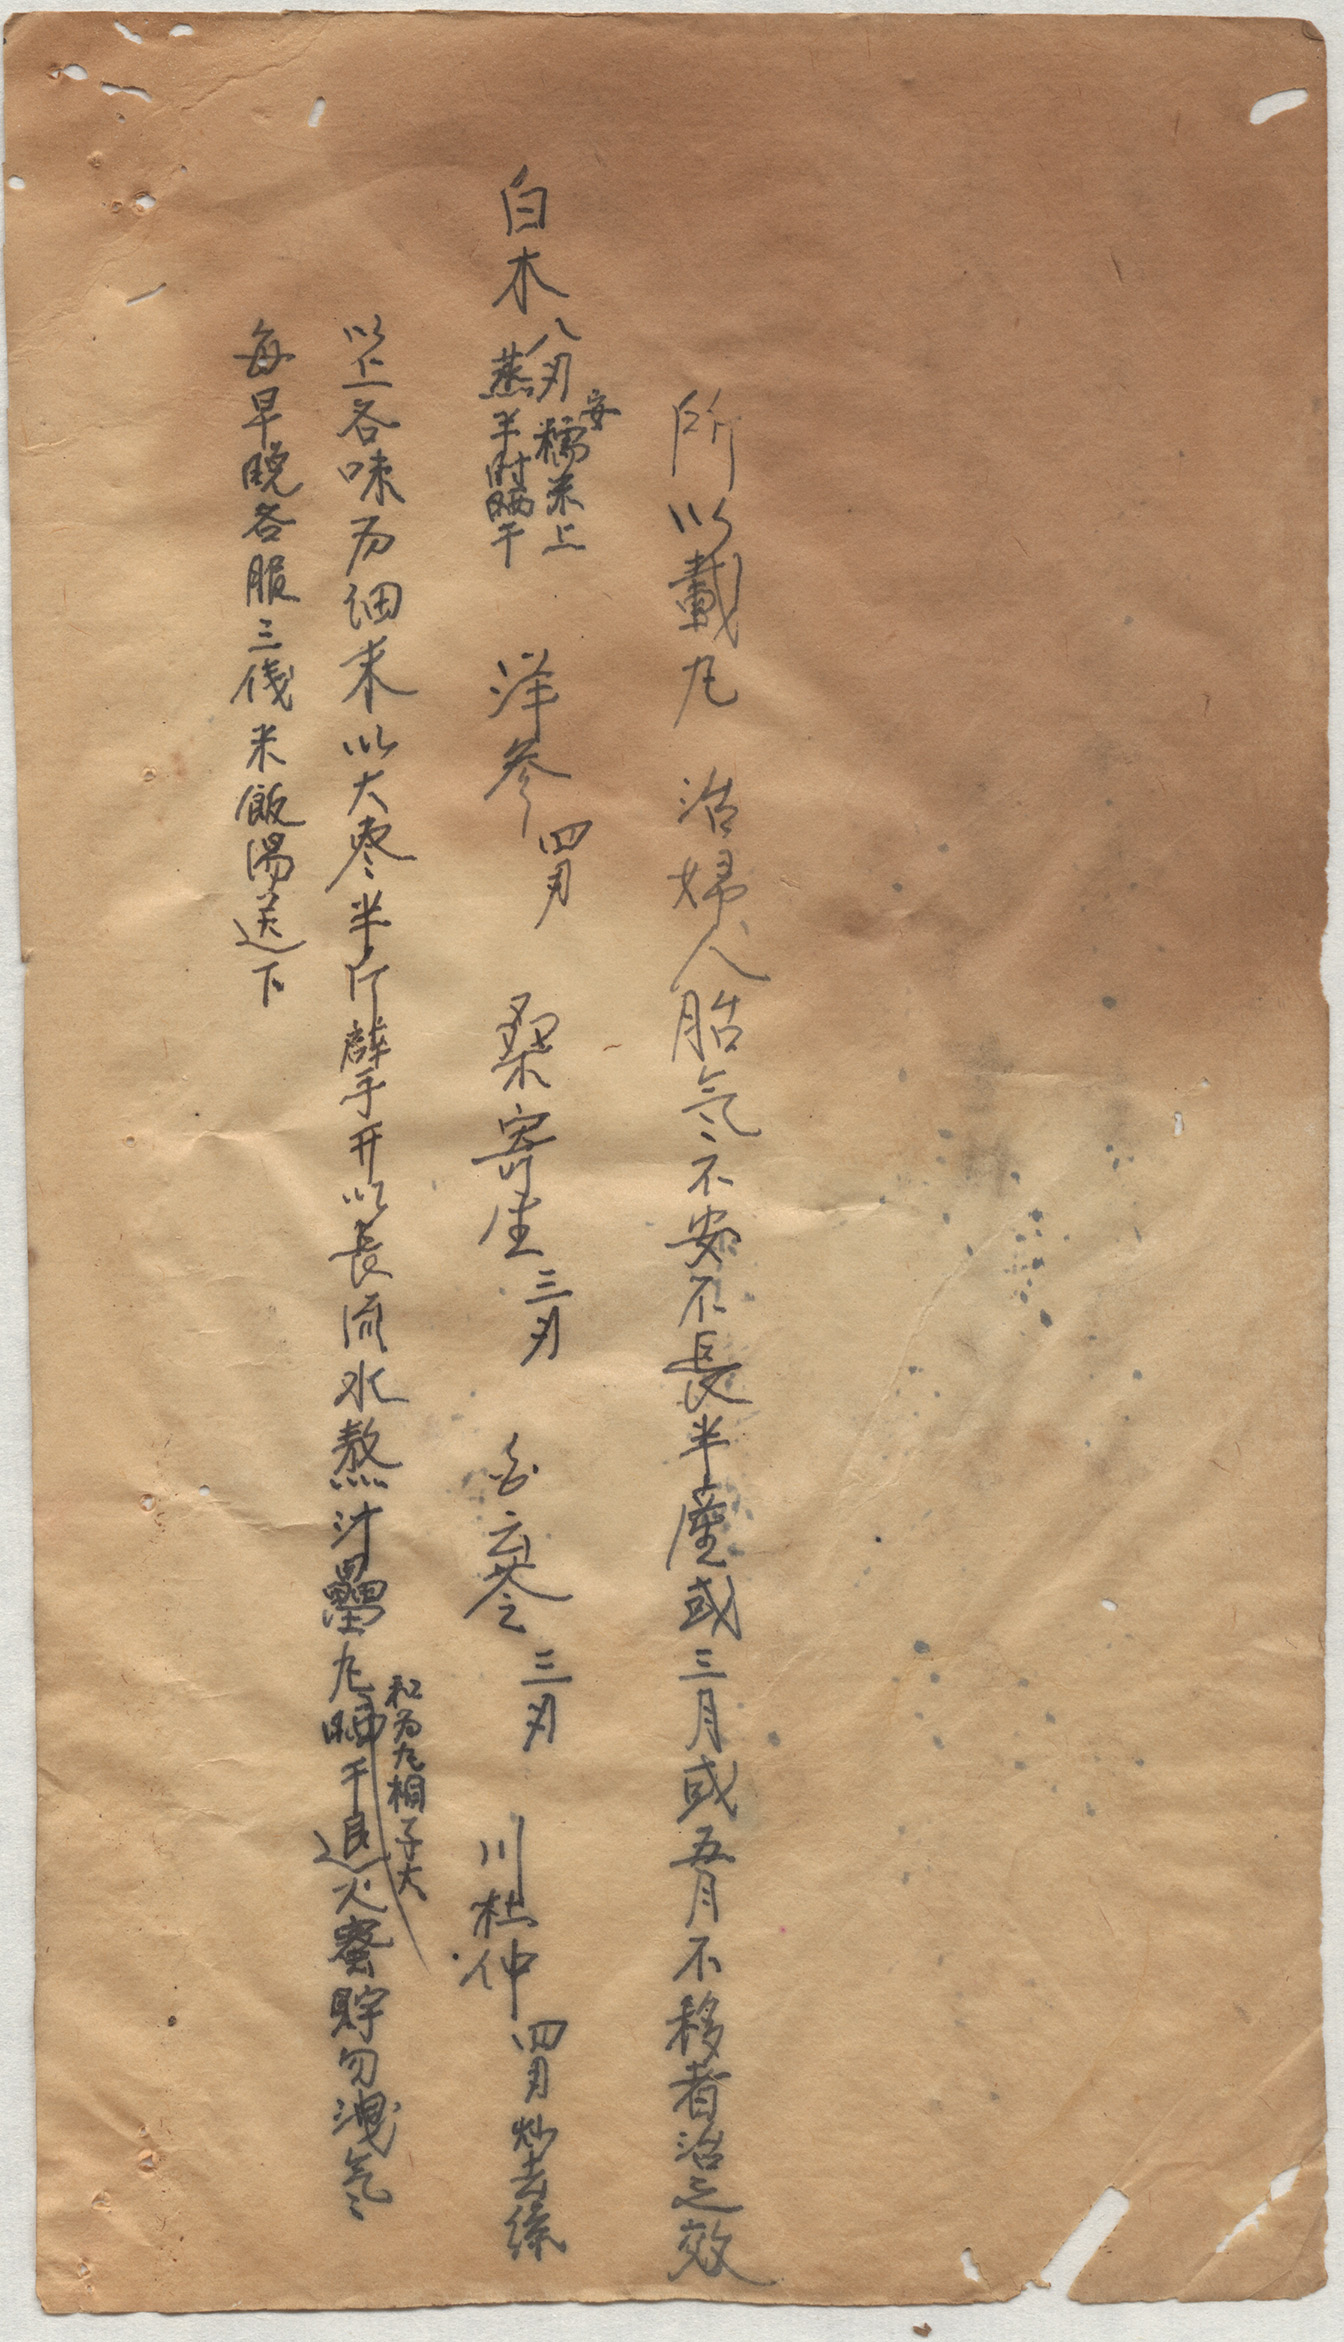 所以載丸 治婦人胎氣不安不長半産或三月或五月不移者治之效
白木八刃 安糯米上蒸半時晒干 洋參四刃 桑寄生三刃 白云苓三刃 川杜仲四刃炒去絲
以上各味為細末以大枣半斤擘手开以長流水熬汁疊丸晒干退火蜜貯勿洩氣
和为丸梧子大
每早晚各服三錢米飯湯送下